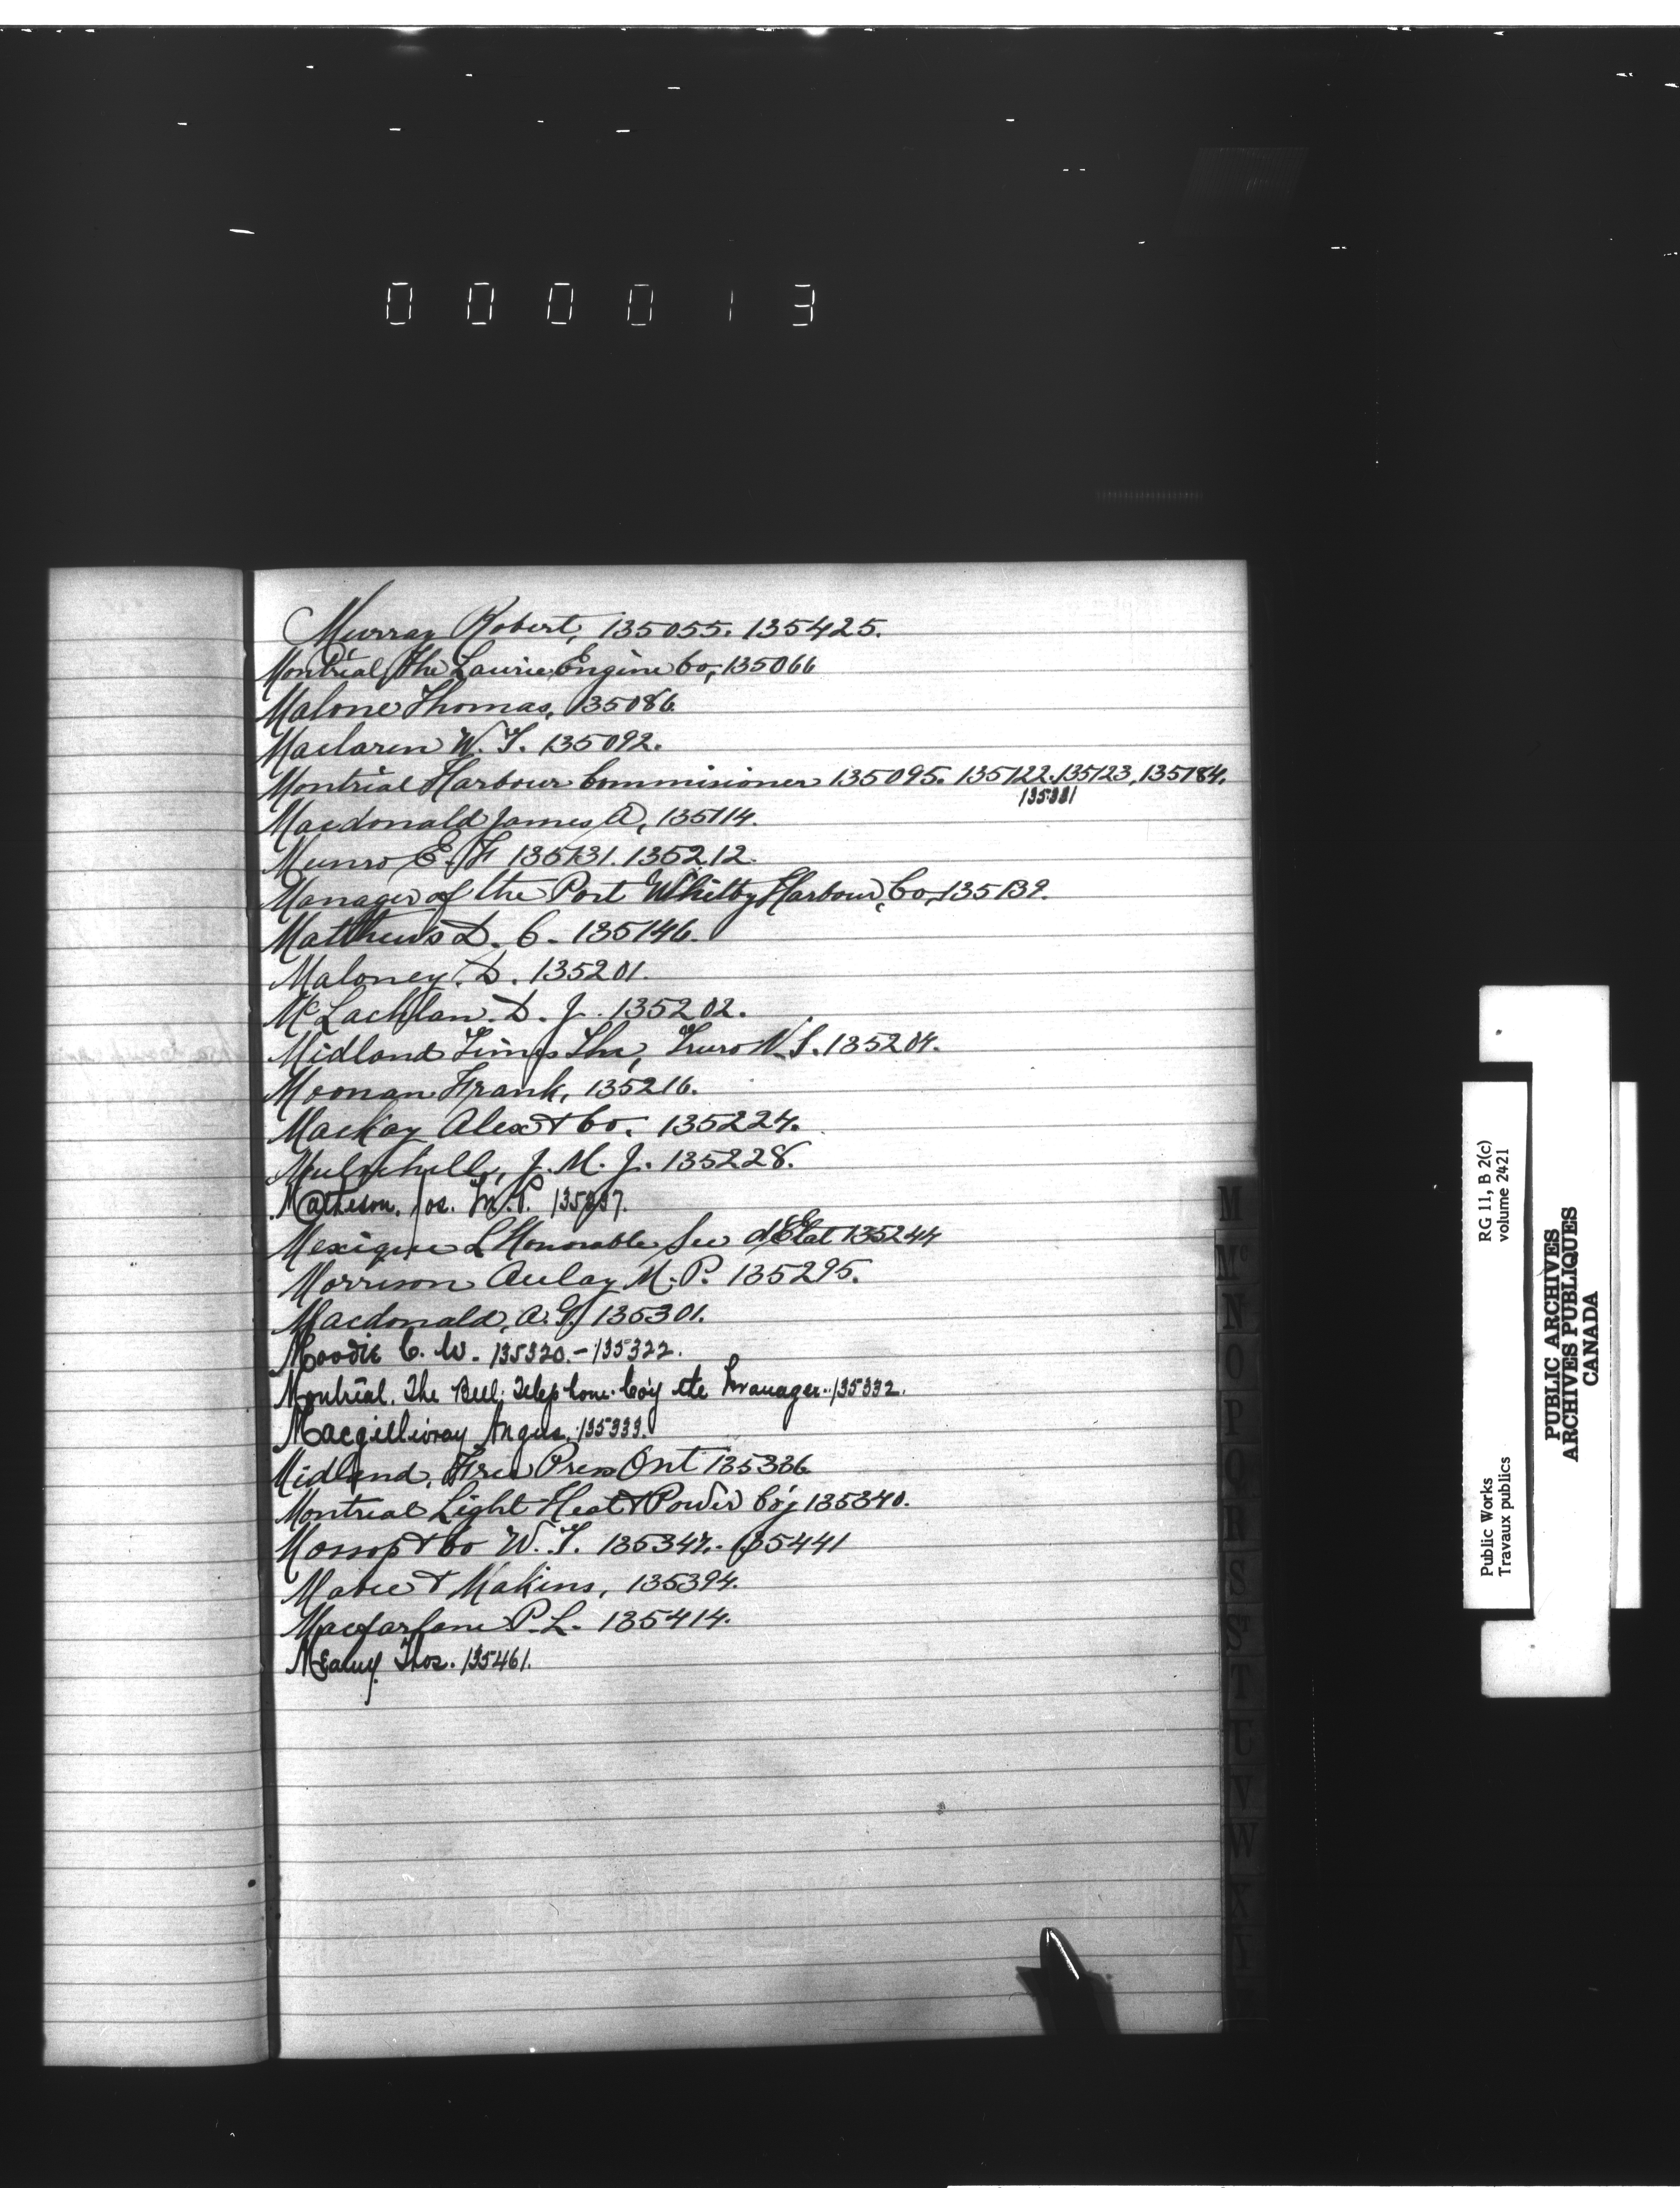 000013
Murray Robert, 135055. 135425.
Montréal, The Laurie Engine Co, 135066
Malone Thomas, 135086
Maclaren W. T. 135092.
Montréal Harbour Commisioner 135095. 135122. 135123, 135184.
135331
Macdonald James A, 135114.
Munro E. F 135131. 135212.
Manager of the Port Whitby Harbour, Co, 135139.
Matthews D. C. 135146.
Maloney. D. 135201.
McLachlan. D. J. 135202.
Midland Times The, Truro N. S. 135204.
Moonan Frank, 135216.
Mackay Alex & Co. 135224.
J. M. J. 135228.
Matheson. Jos. M.P. 135237.
Mexique L'Honorable Sec d'Etat 135244
Morrison Aulay M. P. 135295.
Macdonald, A. G. 135301.
Moodie C. W. 135320. - 135322.
Montréal. The Bell Telephone Co'y the Manager. 135332.
Macgillivray Angus. 135333.
Midland, Free Press Ont 135336
Montreal Light Heat & Power Co'y 135340.
Mossop & Co W. T. 135347. 135441
& Makins, 135394.
Macfarlane P. L. 135414.
Mealey Thos. 135461.
M
Mc
N
O
P
Q
R
S
St
T
U
V
W
X
Y
Public Works
Travaux publics
RG 11, B 2(c)
volume 2421
PUBLIC ARCHIVES
ARCHIVES PUBLIQUES
CANADA